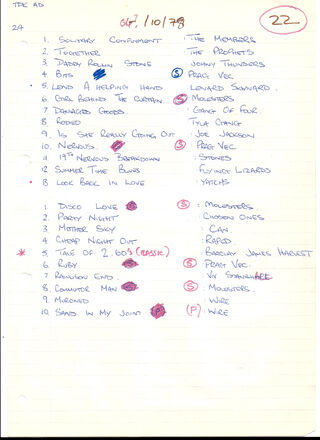 TPE AD
24
/10/78
22
1. SOLITARY CONFINEMENT : THE MEMBERS
2. TOGETHER THE PROPHETS
3. DADDY ROLLIN STONE : JOHNY THUNDERS
4. BITS (S) PRAG VEC
5. LEND A HELPING HAND : LENARD SKINNARD.
6. GIRL BEHIND THE CURTAIN (S) MOLESTERS
7. DAMAGED GOODS : GANG OF FOUR
8. RODEO TYLA GANG
9. IS SHE REALLY GOING OUT : JOE JACKSON
10. NERVOUS. (S) PRAG VEC
11. 19TH NERVOUS BREAKDOWN : STONES
12. SUMMER TIME BLUES : FLYING LIZARDS
13. LOOK BACK IN LOVE : YATCHS
1. DISCO LOVE (S) : MOLESTERS.
2. PARTY NIGHT : CHOSEN ONES
3. MOTHER SKY : CAN
4. CHEAP NIGHT OUT : RAPED
* 5. TALE OF 2 60'S (CLASSIC.) BARCLAY JAMES HARVEST
6. RUBY (S) PRAG VEC.
7. END. VIV
8. COMMUTOR MAN (S) : MOLESTERS.
9. MERCARIED : WIRE
10. SAND IN MY JOINT (P) (P) : WIRE